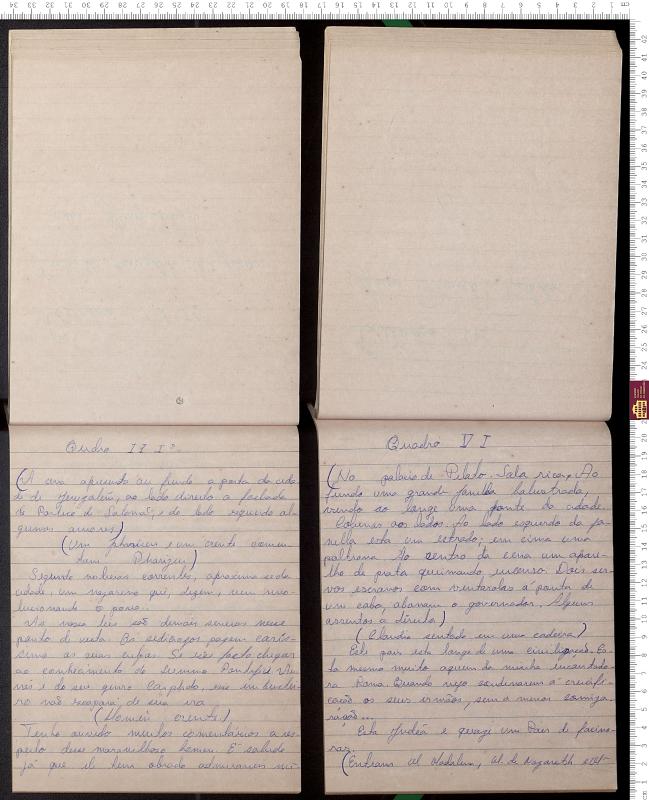 Qudro II Iº
(A cena apresenta ao fundo a porta da cida-
de de Jerusalem, ao lado direito a fachada
do Portico de Salomã, e do lado esquerdo al-
gumas arvores)
(Um phariseu e um crente comen-
tam Phariseu)
Segundo noticias correntes, aproxima se da
cidade, um nazareno que, dizem, vem revo-
lucionando o povo.
As nossas leis são demais severas nesse
ponto de vista. Os sediciosos pagam caris-
simo as suas culpas. Se esse facto chegar
ao conhecimento do Summo Pontifice
e do seu genro Caiphás, esse
não escapará de sua ira
(Homem crente)
Tenho ouvido muitos comentarios a res-
peito desse maravilhoso homem. É sabido
já que ele tem obrado admiraveis mi-
Quadro VI
(No palacio de Pilato. Sala rica. Ao
fundo uma grande janella balaustrada,
vendo ao longe uma ponte da cidade.
Colunas aos lados. Ao lado esquerdo da ja-
nella esta um estrado; em cima uma
paltrona. Ao centro da cena um apare-
lho de prata queimando incenso. Dois ser-
vos escravos com ventarolas á ponta de
um cabo, abanam o governador. Alguns
assentos a direita)
(Claudia sentada em uma cadeira)
Este pais esta longe de uma civilização. Es-
ta mesmo muito aquem da minha encantado-
ra Roma. Quando vejo condenarem á crucifi-
cação os seus irmãos, sem a menor comise-
ração...
Esta Judéa é quasi um Pais de facino-
ras.
(Entram M Madalena, M. de Nazareth e